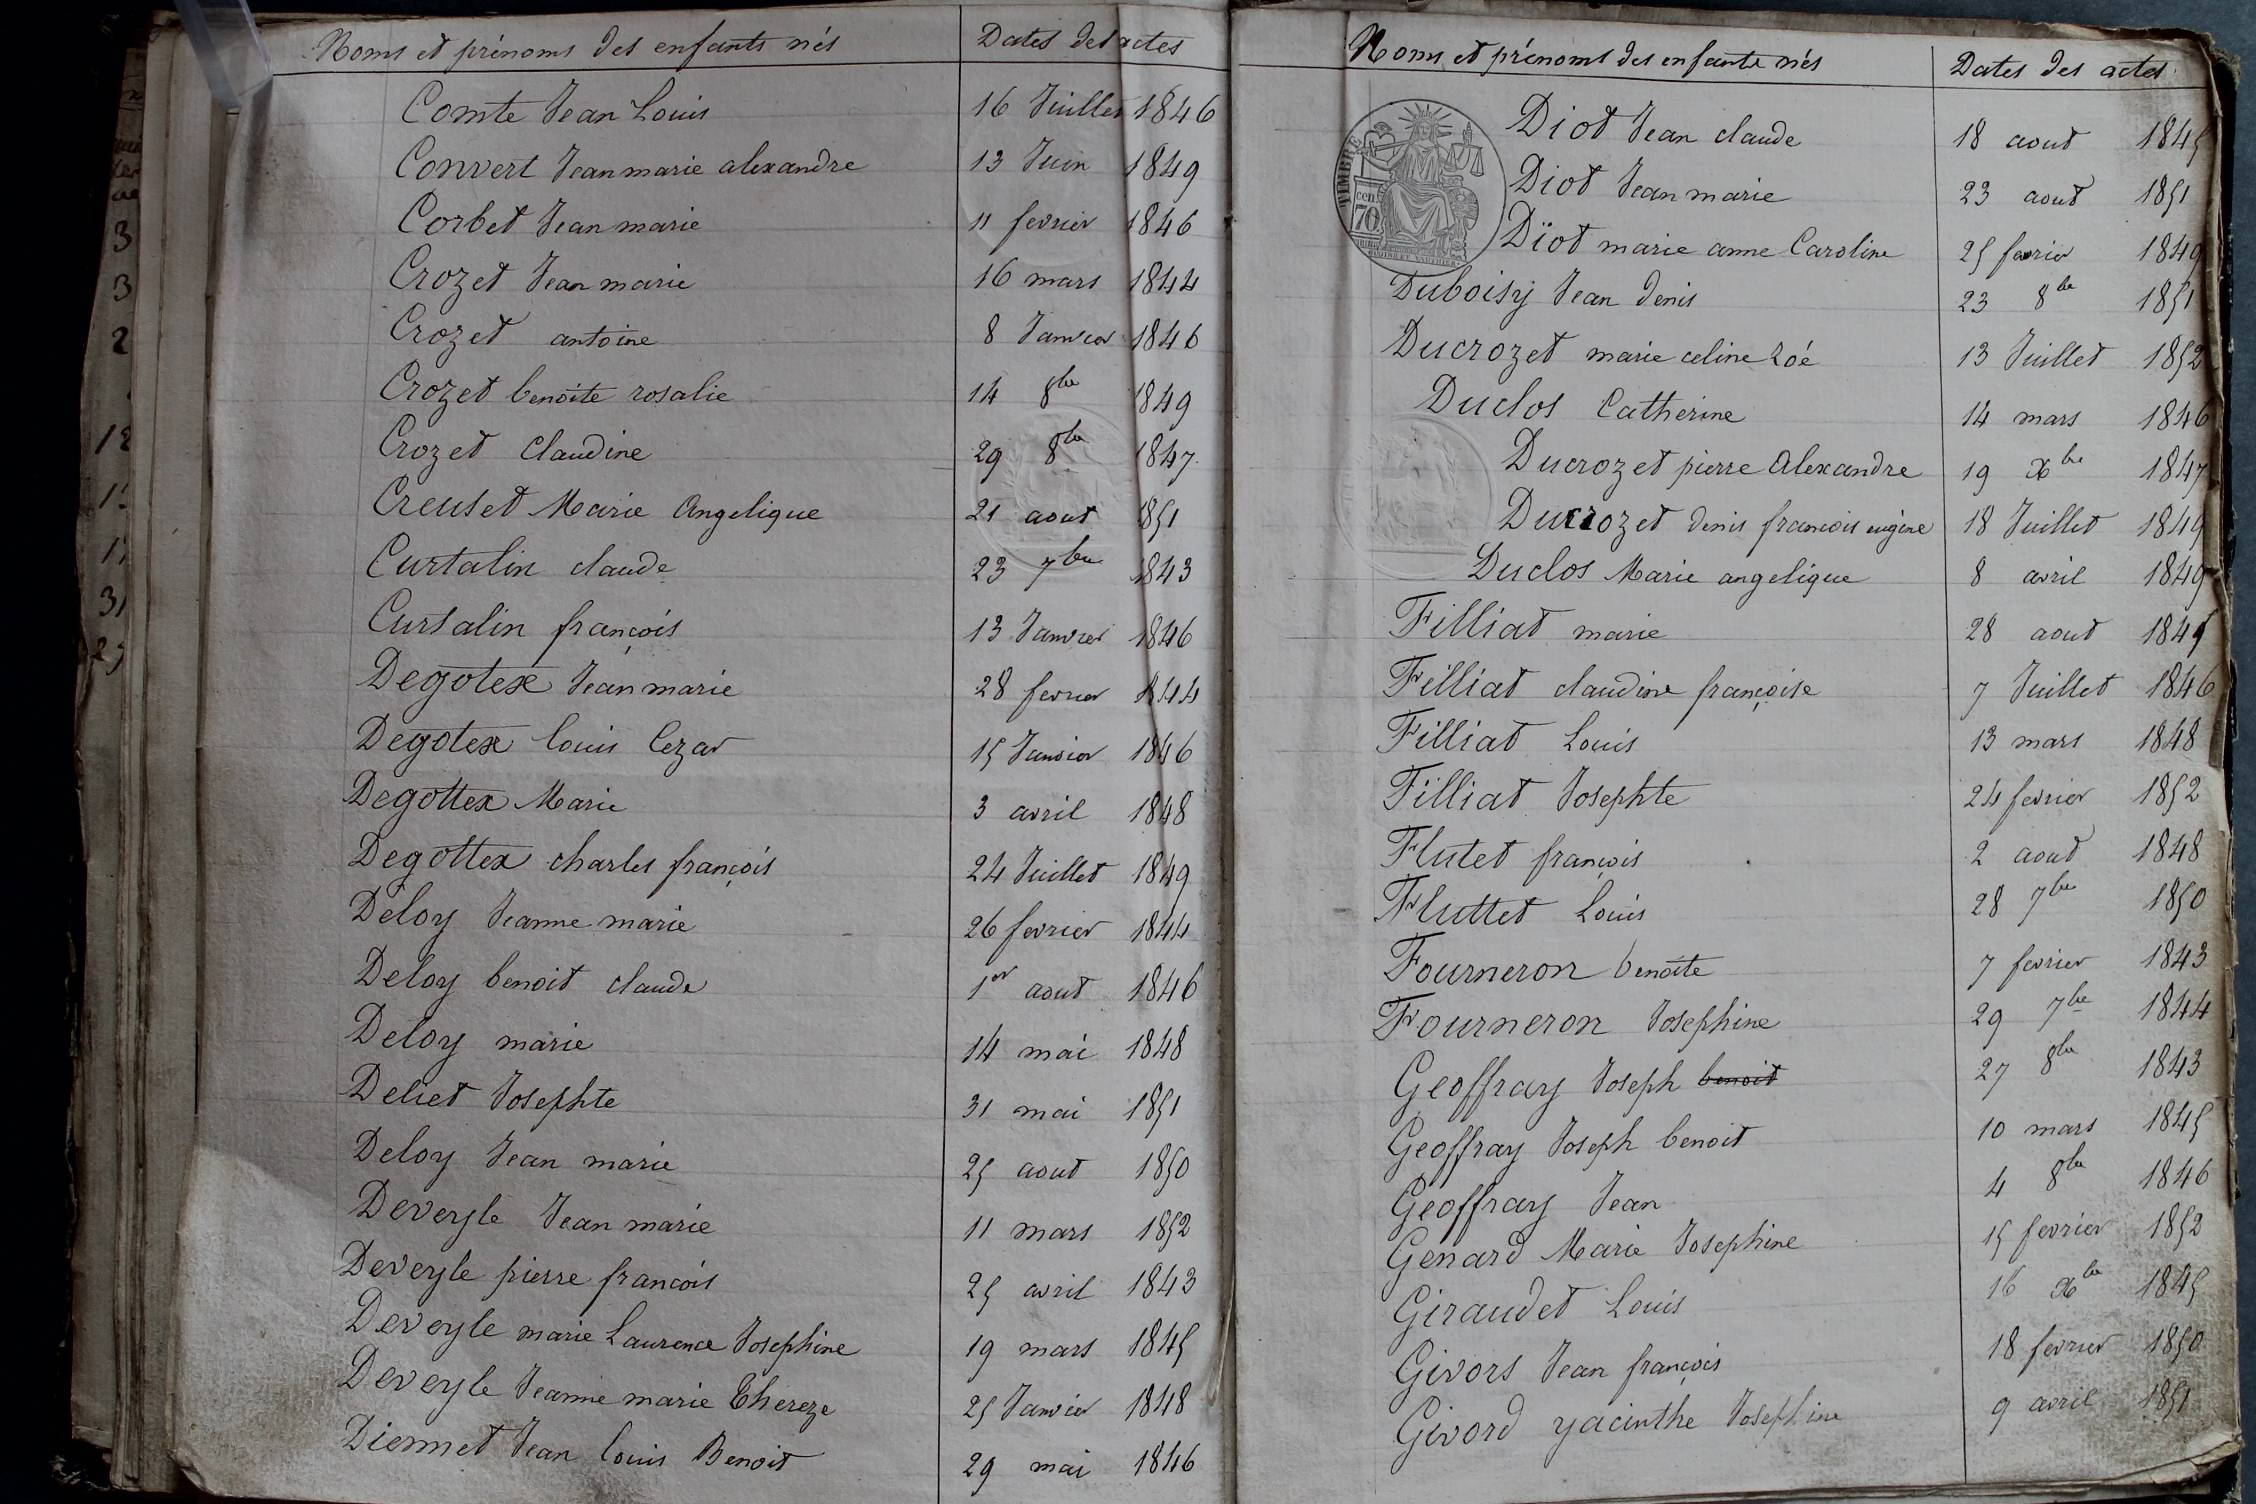 Noms et prénoms des enfants nés Dates des actes
Comte Jean Louis 16 Juillet 1846
Convert Jean marie alexandre 13 Juin 1849
Corbet Jean marie 11 fevrier 1846
Crozet Jean marie 16 mars 1844
Crozet antoine 8 Janvier 1846
Crozet benoite rosalie 14 8bre 1849
Crozet Claudine 29 8bre 1847
Creuset Marie Angelique 21 aout 1851
Curtalin claude 23 7bre 1843
Curtalin françois 13 Janvier 1846
Degotex Jean marie 28 fevrier 1844
Degotex louis Cezar 15 Janvier 1846
Degottex Marie 3 avril 1848
Degottex charles françois 24 Juillet 1849
Deloy Jeanne marie 26 fevrier 1844
Deloy benoit claude 1er aout 1846
Deloy marie 14 mai 1848
Deliet Josephte 31 mai 1851
Deloy Jean marie 25 aout 1850
Deveyle Jean marie 11 mars 1852
Deveyle pierre francois 25 avril 1843
Deveyle marie Laurence Josephine 19 mars 1845
Deveyle Jeanne marie Thereze 25 Janvier 1848
Diennet Jean louis Benoit 29 mai 1846
Noms et prénoms des enfants nés Dates des actes
TIMBRE
cen.
70
Diot Jean claude 18 aout 1845
Diot Jean marie 23 aout 1851
Diot marie anne Caroline 25 fevrier 1849
Duboisy Jean denis 23 8bre 1851
Ducrozet marie celine Zoé 13 Juillet 1852
Duclos Catherine 14 mars 1846
Ducrozet pierre Alexandre 19 Xbre 1847
Ducrozet denis francois eugène 18 Juillet 1849
Duclos Marie angelique 8 avril 1849
Filliat marie 28 aout 1845
Filliat claudine françoise 7 Juillet 1846
Filliat Louis 13 mars 1848
Filliat Josephte 24 fevrier 1852
Flutet françois 2 aout 1848
Fluttet Louis 28 7bre 1850
Fourneron benoite 7 fevrier 1843
Fourneron Josephine 29 7bre 1844
Geoffray Joseph benoit 27 8bre 1843
Geoffray Joseph benoit 10 mars 1845
Geoffray Jean 4 8bre 1846
Genard Marie Josephine 15 fevrier 1852
Giraudet Louis 16 Xbre 1845
Givors Jean françois 18 fevrier 1850
Givord yacinthe Josephine 9 avril 1851